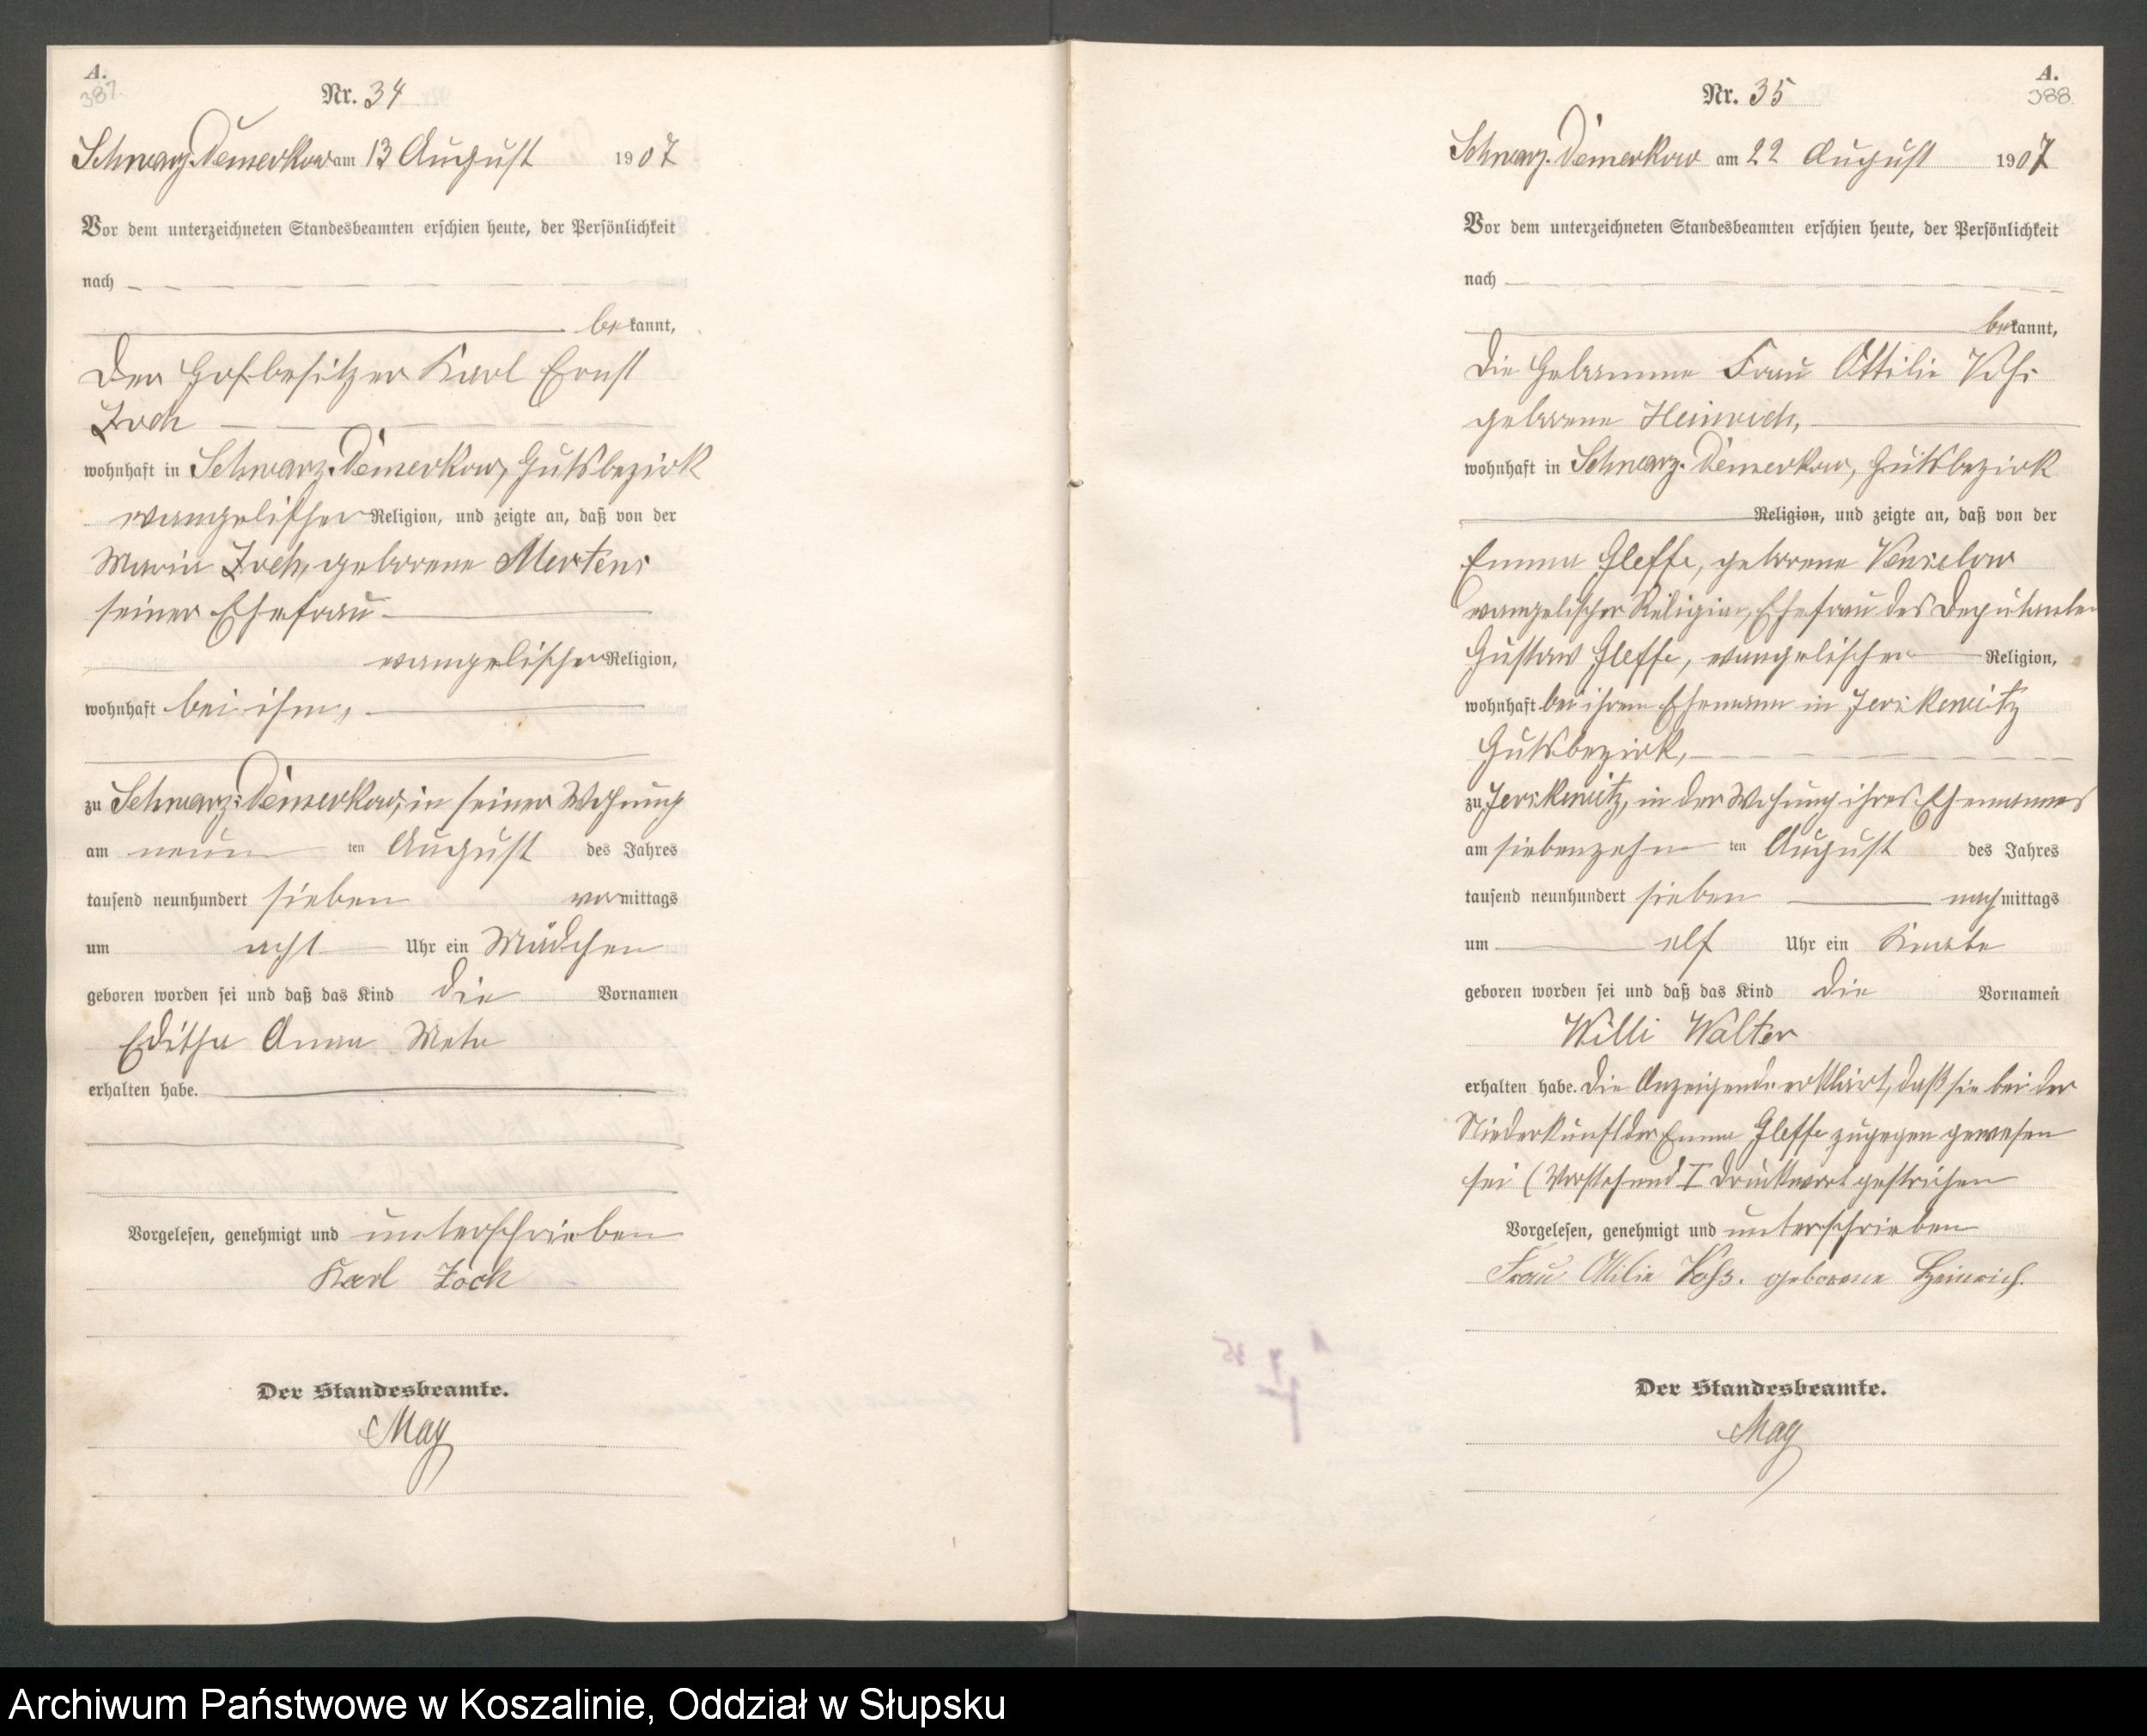 A.
387.
Nr. 34
Schwarz-Damerkow am 13 August 1907
Vor dem unterzeichneten Standesbeamten erschien heute, der Persönlichkeit
nach
bekannt,
Der Hofbesitzer Karl Ernst
Zoch
wohnhaft in Schwarz-Damerkow, Gutsbezirk
evangelischer Religion, und zeigte an, daß von der
Maria Zoch, geborene Mertens
seiner Ehefrau
evangelischer Religion,
wohnhaft bei ihm,
zu Schwarz-Damerkow, in seiner Wohnung
am neunten August des Jahres
tausend neunhundert sieben vormittags
um acht Uhr ein Mädchen
geboren worden sei und daß das Kind die Vornamen
Editha Anna Meta
erhalten habe.
Vorgelesen, genehmigt und unterschrieben
Karl Zoch
Der Standesbeamte.
May
A.
388.
Nr. 35
Schwarz-Damerkow am 22 August 1907
Vor dem unterzeichneten Standesbeamten erschien heute, der Persönlichkeit
nach
bekannt,
Die Hebamme Frau Ottilie
geborene Heinrich,
wohnhaft in Schwarz-Damerkow, Gutsbezirk
Religion, und zeigte an, daß von der
Emma Gleffe, geborene Venselow
evangelischer Religion, Ehefrau des Deputanten
Gustav Gleffe, evangelischer Religion,
wohnhaft bei ihrem Ehemann in Jerskewitz
Gutsbezirk,
zu Jerskewitz, in der Wohnung ihres Ehemannes
am siebenzehnten August des Jahres
tausend neunhundert sieben nachmittags
um elf Uhr ein Knabe
geboren worden sei und daß das Kind die Vornamen
Willi Walter
erhalten habe. Die Anzeigende erklärt, daß sie bei der
Niederkunft der Emma Gleffe zugegen gewesen
sei (Vorstehend I Druckwort gestrichen
Vorgelesen, genehmigt und unterschrieben
Frau Otilie Vohs. geborene Heinrich.
Der Standesbeamte.
May
Archiwum Państwowe w Koszalinie, Oddział w Słupsku